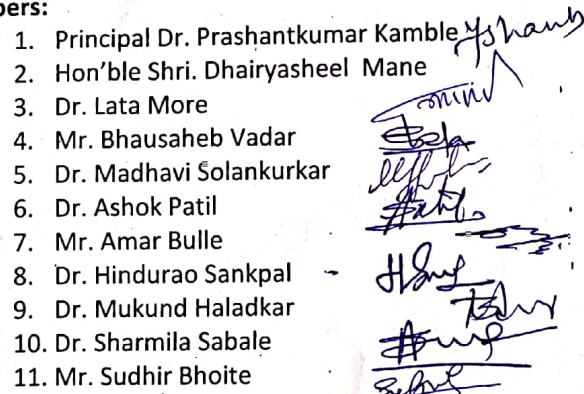 bers:
1. Principal Dr. Prashantkumar Kamble
2. Hon'ble Shri. Dhairyasheel Mane
3. Dr. Lata More
4. Mr. Bhausaheb Vadar
5. Dr. Madhavi Solankurkar
6. Dr. Ashok Patil
7. Mr. Amar Bulle
8. Dr. Hindurao Sankpal -
9. Dr. Mukund Haladkar
10. Dr. Sharmila Sabale
11. Mr. Sudhir Bhoite